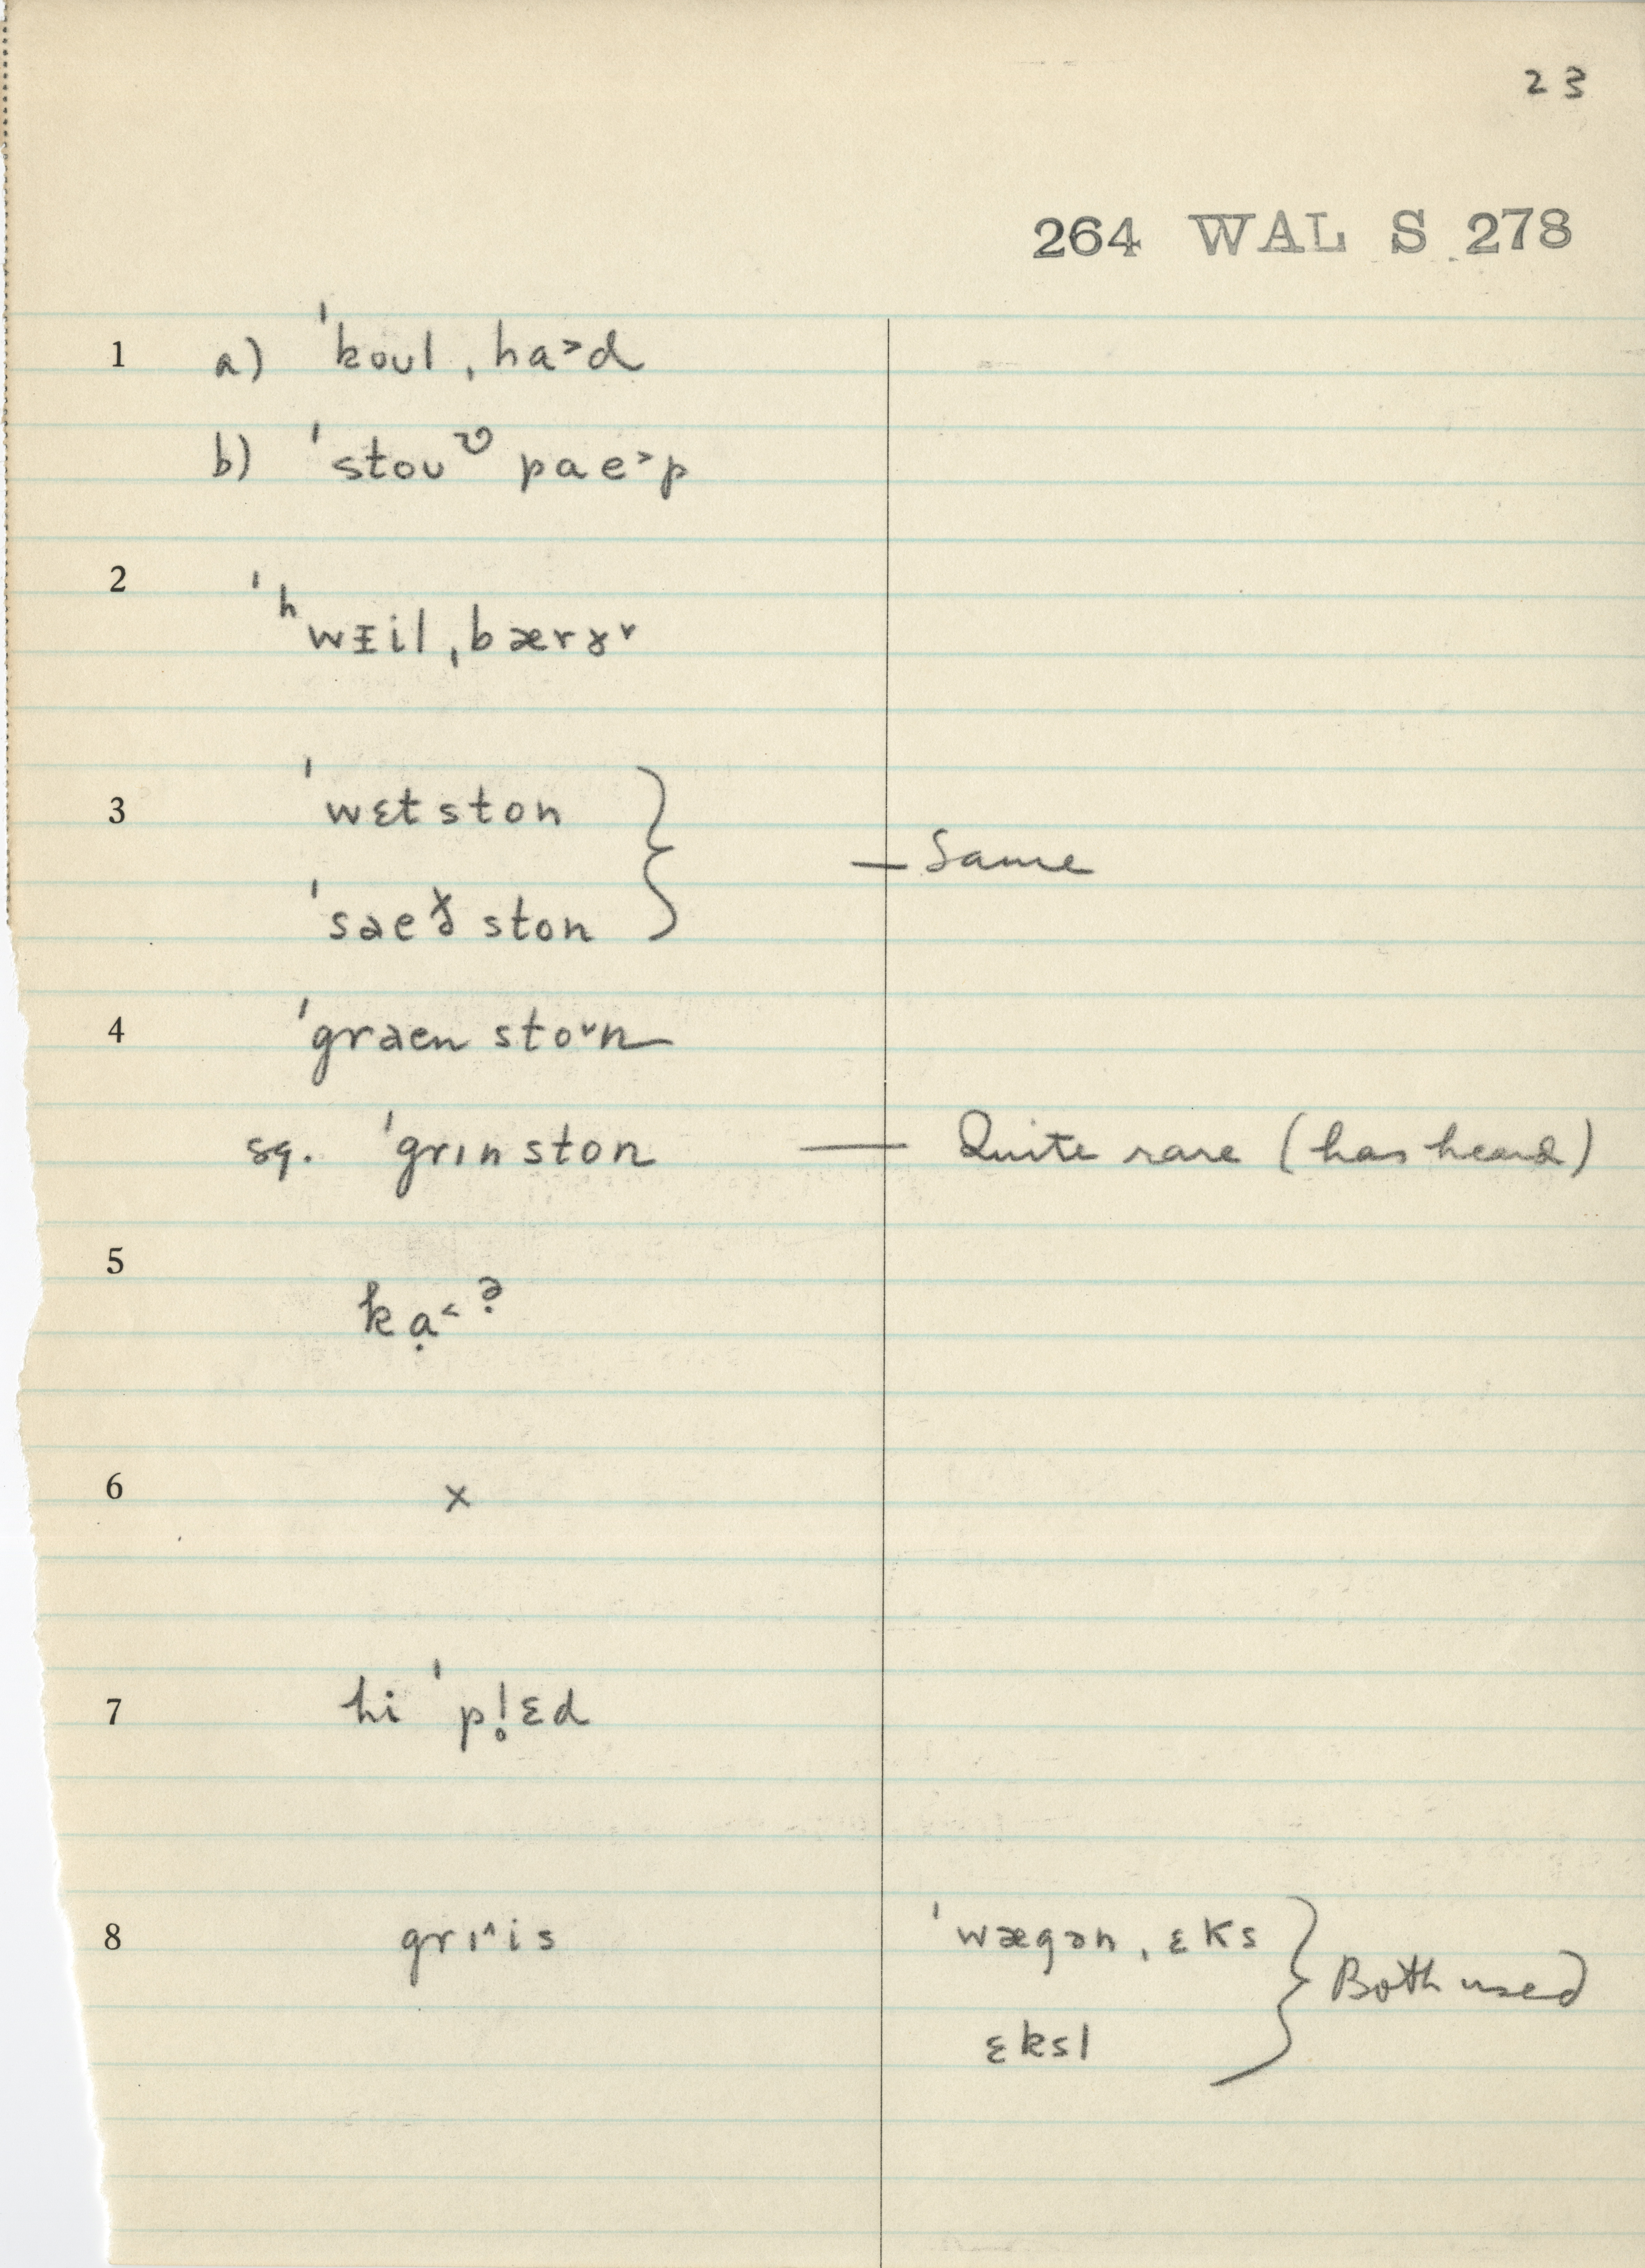 23
264 WAL S 278
1 a) ˈkoul ˌha˃d
b) ˈstouᶷ pae˃p
2 ˈʰwɪil ˌbærɤ˅
3 ˈwɛtston
ˈsaeɤ̆ ston } — Same
4 ˈgraen sto˅n
sq. ˈgrɪnston — Quite rare (has heard)
5 kạ˂ᵊ̣
6 x
7 hi ˈpl̥ɛd
8 grɪ˄is ˈwægən ˌɛks
ɛksl } Both used